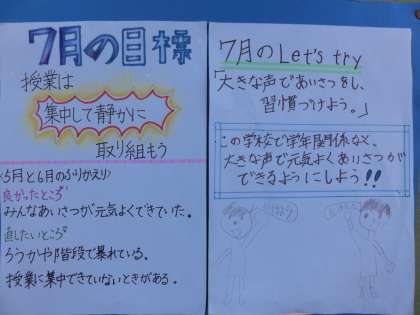 7月の目標
授業は
集中して静かに
取り組もう
〈5月と6月のふりかえり〉
良かったところ
みんなあいさつが元気よくできていた。
直したいところ
ろうかや階段で暴れている。
授業に集中できていないときがある。
7月のLet's try
「大きな声であいさつをし、
習慣づけよう。」
この学校で学年関係なく、
大きな声で元気よくあいさつが
できるようにしよう!!